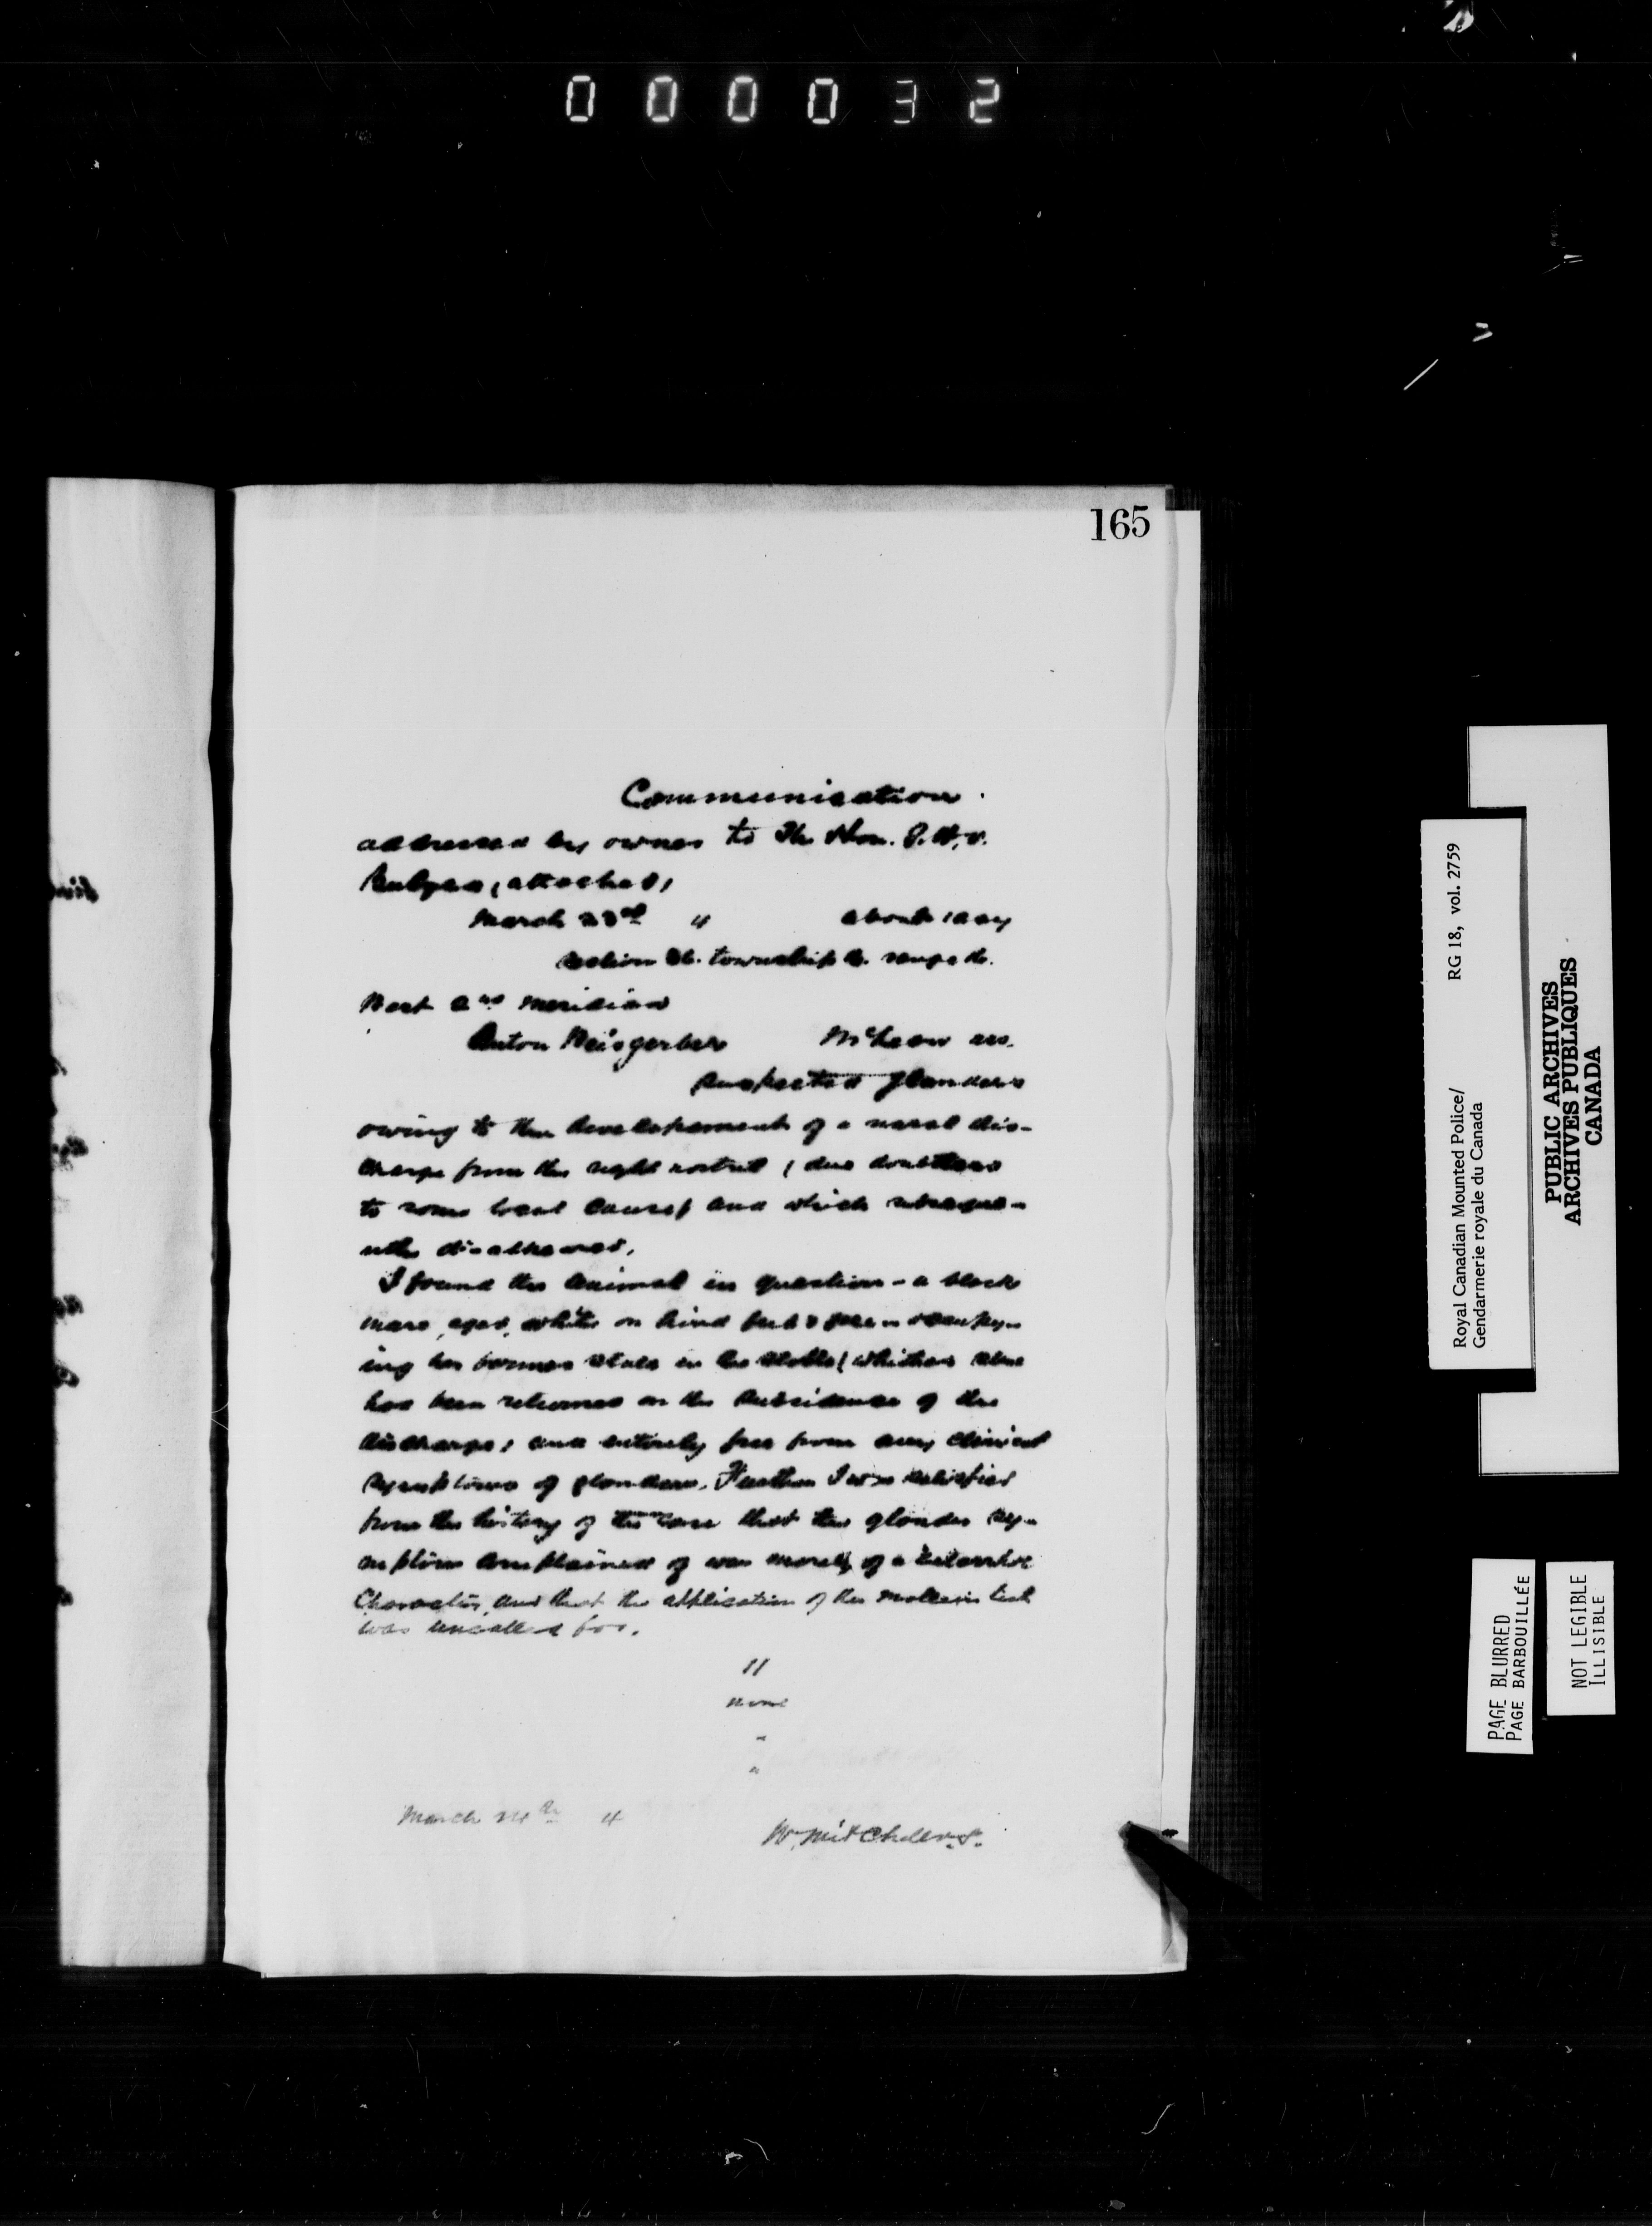 000032
165
Communication.
addressed by owner to The Hon. G. W. V.
Bulyea (attached)
March 23rd 4 about 1 day
section 26. township range
West 2nd Meridian
Anton Weisgerber McLean
suspected glanders
owing to the developement of a nasal dis-
charge from the right nostril (due doubtless
to some local cause) and which subseque-
ntly disappeared.
I found the animal in question - a black
mare, aged, white on hind feet & occupy-
ing her former stall in the stable (whither she
has been returned on the subsidence of the
discharge) and entirely free from any clinical
symptoms of glanders. Further I was satisfied
from the history of the case that the glander sy-
mptom complained of was merely of a catarrhal
Character, and that the application of the mallein test
was uncalled for.
11
none
"
"
March 24th 4
W. Mitchell V.S.
Royal Canadian Mounted Police/ RG 18, vol. 2759
Gendarmerie royale du Canada
PUBLIC ARCHIVES
ARCHIVES PUBLIQUES
CANADA
PAGE BLURRED
PAGE BARBOUILLÉE
NOT LEGIBLE
ILLISIBLE